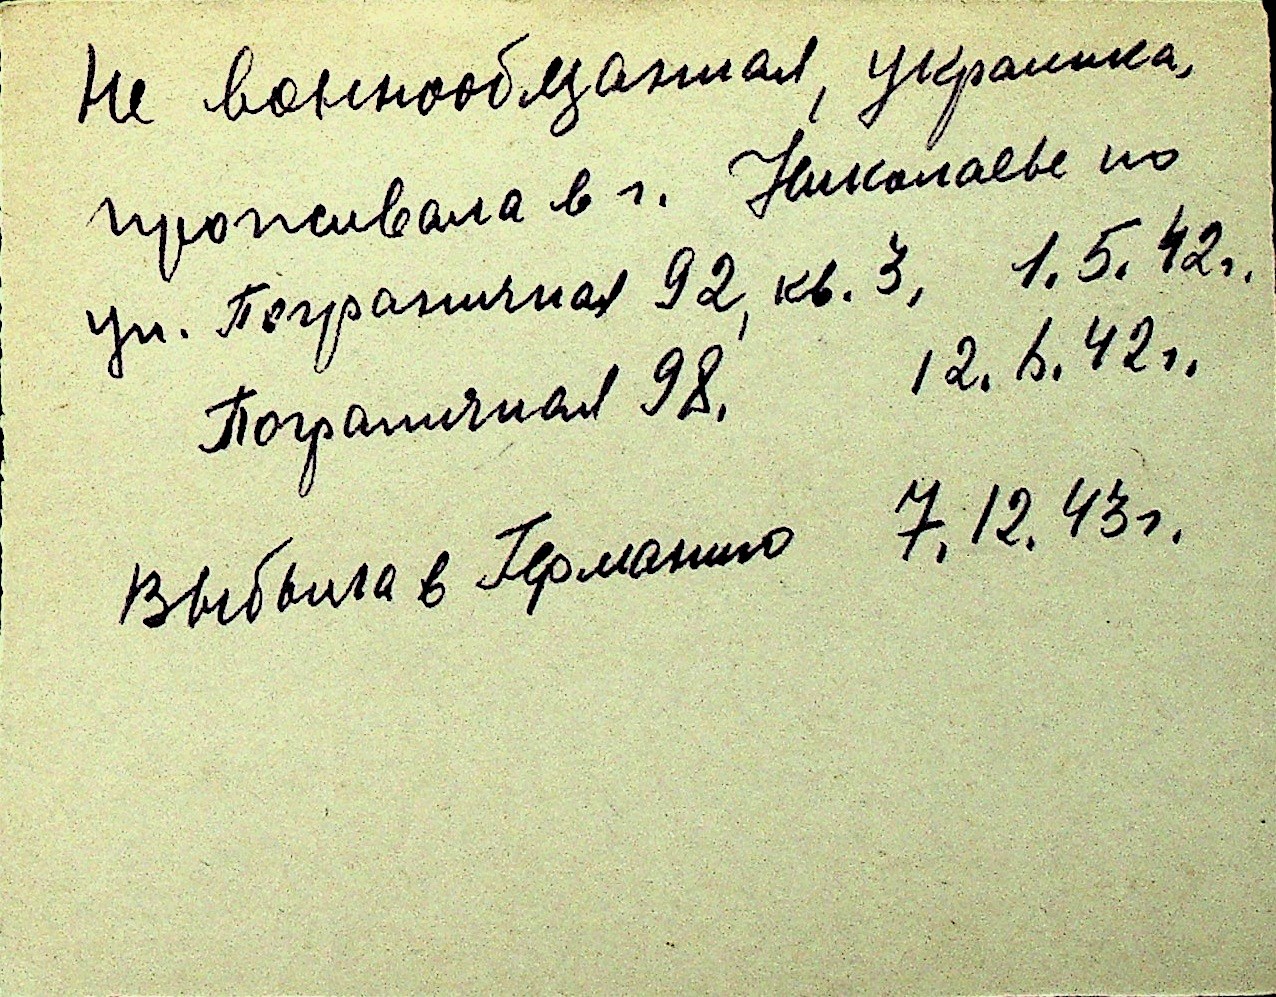 Не военнообязанная, украинка,
проживала в г. Николаеве по
ул. Пограничная 92, кв. 3, 1.5.42г.
Пограничная 98. 12.6.42г.
Выбыла в Германию 7.12.43г.